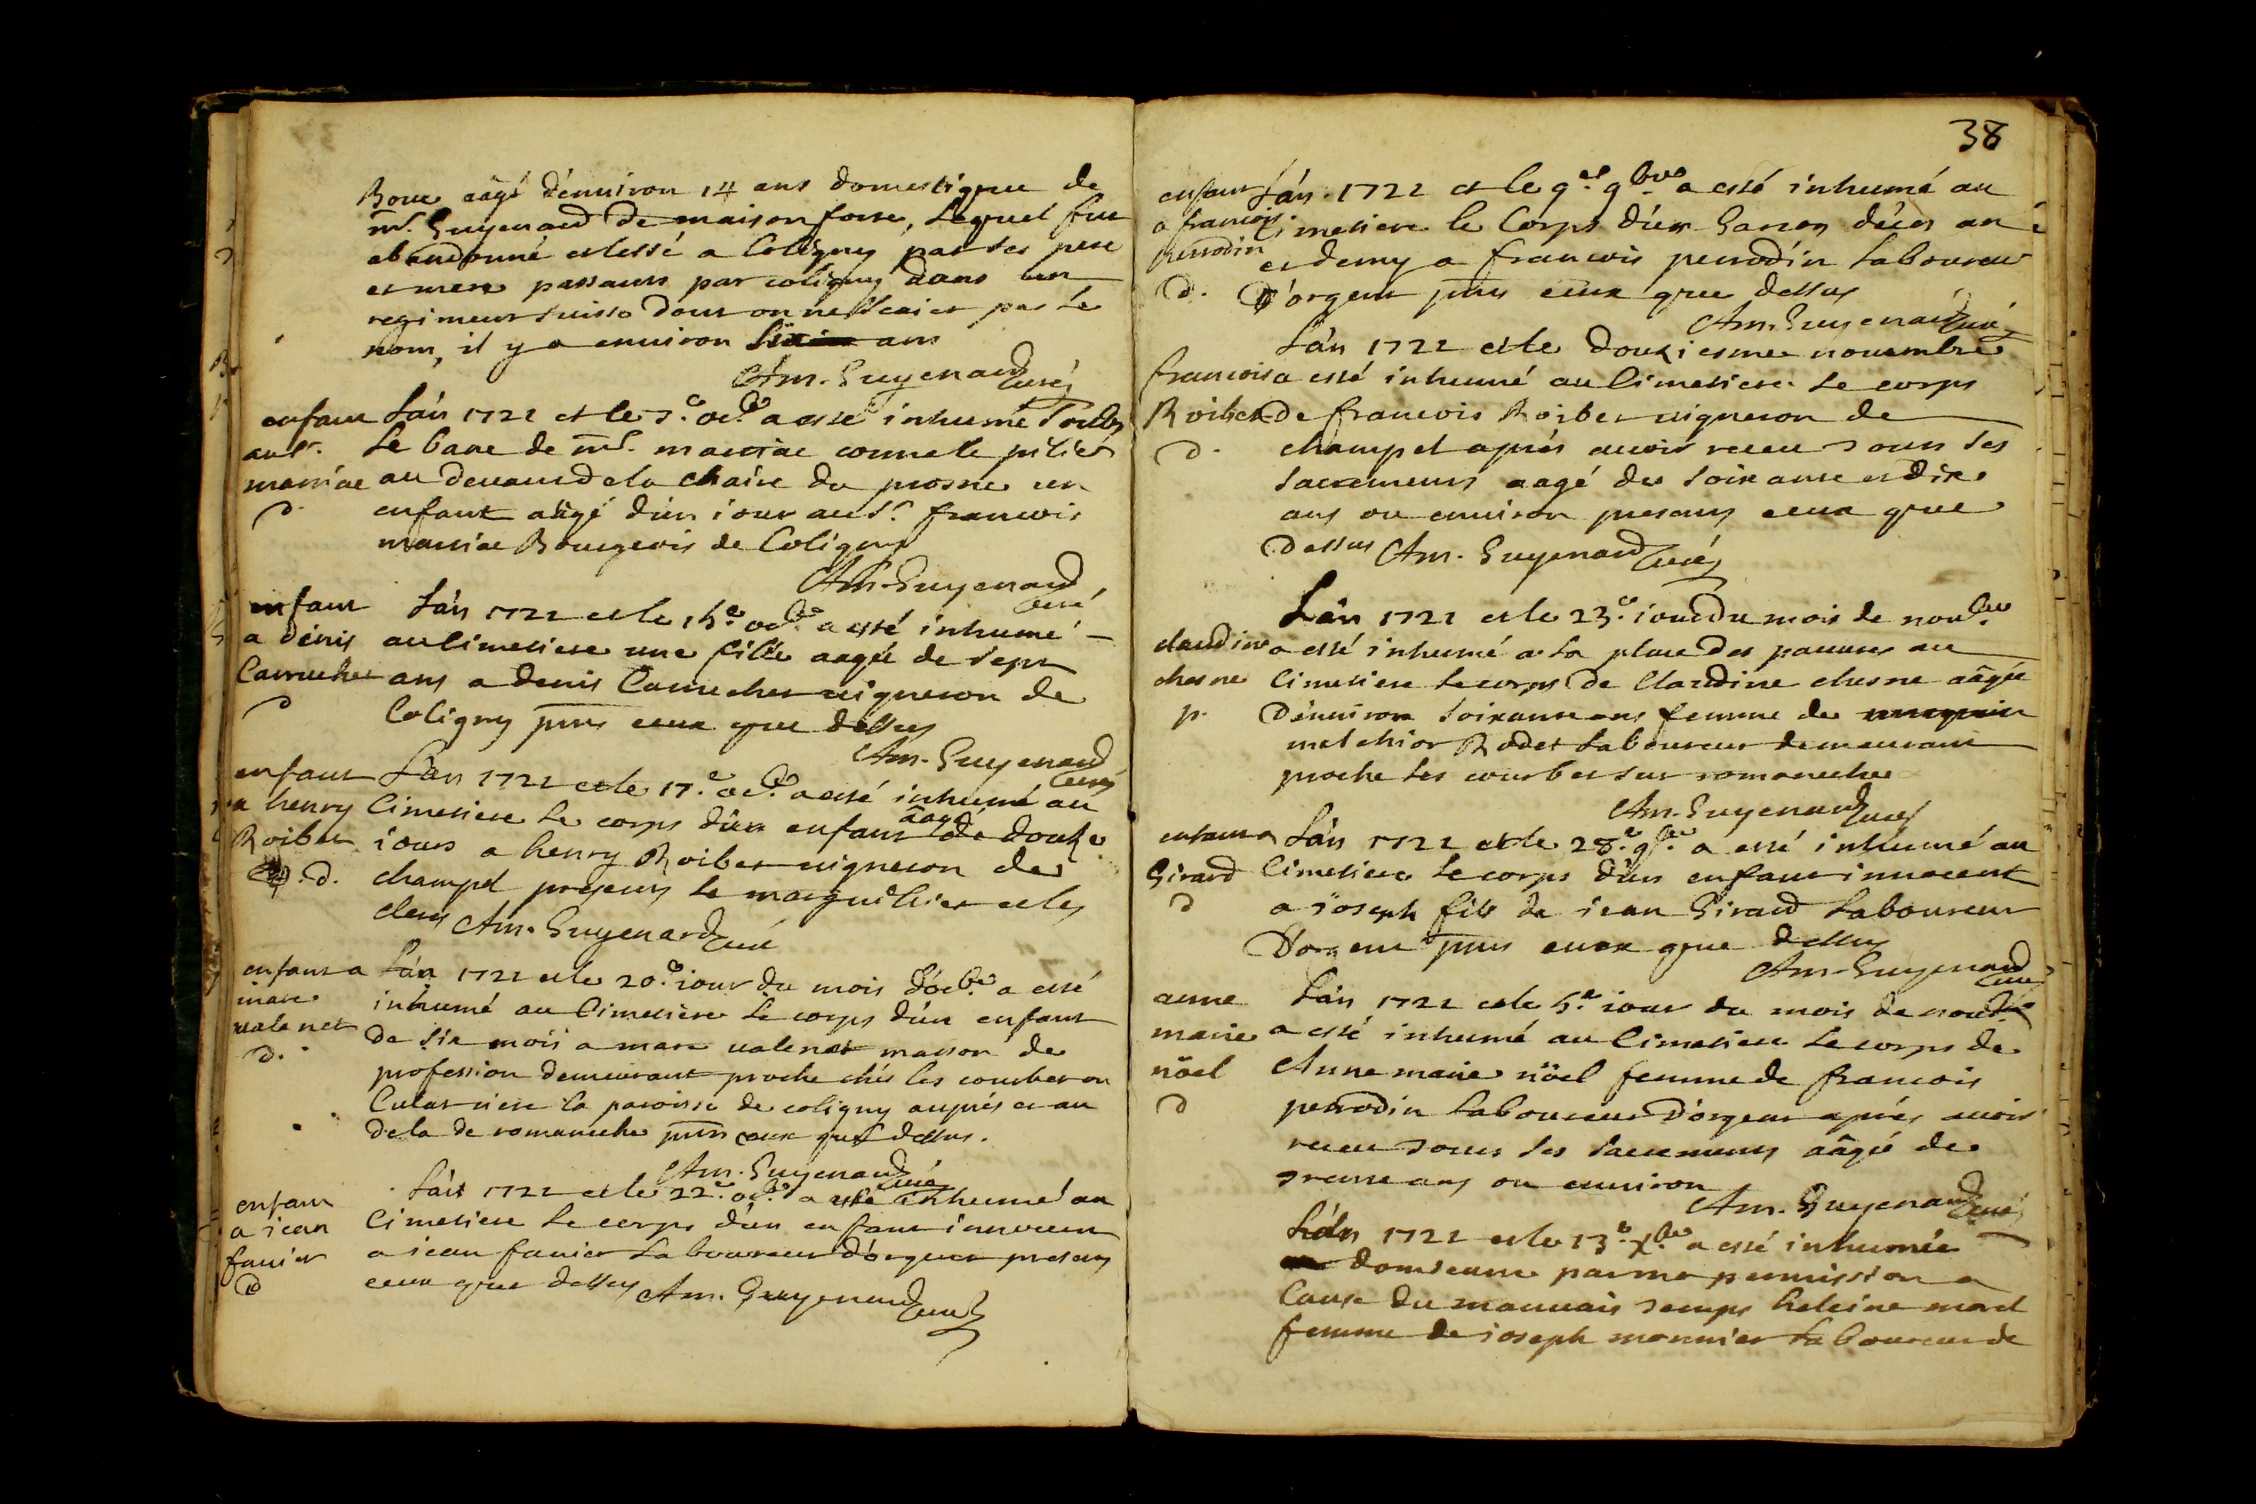 Boue aâgé d'enuiron 14 ans domestique de
mr. Guyenard de maisonforte, Lequel fut
abandonné et lessé a Coligny par ses pere
et mere passants par coligny dans un
regiment suisse dont on ne scait pas le
nom, il y a enuiron six ans
Am. Guyenard curé
enfant
au sr.
marriae
d.
L'an 1722 et le 7.e oc.bre a esté inhumé sous
le banc de mr. marriae contre le pilier
au deuant de la chaire du prosne un
enfant aâgé d'un iour au sr. francois
marriae Bourgeois de Coligny
Am. Guyenard
curé
enfant
a denis
Carruchet
d
L'an 1722 et le 15.e oc.bre a esté inhumé
au Cimetiere une fille aagée de sept
ans a denis Carruchet uigneron de
Coligny pnts ceux que dessus
Am. Guyenard
curé
enfant
a henry
Roibet
d.
L'an 1722 et le 17.e oc.bre a esté inhumé au
Cimetiere le corps d'un enfant aag de douze
iours a henry Roibet uigneron de
champel presents le marguillier et les
clercs Am. Guyenard curé
enfant a
marc
ualenet
d.
L'an 1722 et le 20.e iour du mois d'oc.bre a esté
inhumé au Cimetiere le corps d'un enfant
de six mois a marc ualenet masson de
profession demeurant proche chés les courbet ou
Culatriere la paroisse de coligny auprés et au
dela de romaneche pnts ceux que dessus.
Am. Guyenard curé
enfant
a iean
fauier
d
L'an 1722 et le 22.e oc.bre a esté inhumé au
Cimetiere le corps d'un enfant innocent
a iean fauier laboureur d'orgent presents
ceux que dessus Am. Guyenard curé
38
enfant
a francois
perrodin
d.
L'an 1722 et le 9.e 9.bre a esté inhumé au
Cimetiere le Corps d'un Garson d'un an
et demy a francois perrodin laboureur
d'orgent pnts ceux que dessus
Am. Guyenard curé
francois
Roibet
d.
L'an 1722 et le douziesme nouembre
a esté inhumé au Cimetiere le corps
de francois Roibet uigneron de
champel aprés auoir receu tous les
sacrements aagé de soixante et dix
ans ou enuiron presents ceux que
dessus Am. Guyenard curé
claudine
chesne
p.
L'an 1722 et le 23.e iour du mois de nou.bre
a esté inhumé a la place des pauures au
Cimetiere le corps de Claudine chesne aâgée
d'enuiron soixante ans femme de
melchior Rodet laboureur demeurant
proche les courbet sur romaneche
Am. Guyenard curé
enfant a
Girard
d
L'an 1722 et le 28.e 9.bre a esté inhumé au
Cimetiere le corps d'un enfant innocent
a ioseph fils de iean Girard laboureur
d'orgent pnts ceux que dessus
Am. Guyenard
curé
anne
marie
nöel
d
L'an 1722 et le 5.e iour du mois de
a esté inhumé au Cimetiere le corps de
Anne marie nöel femme de francois
perrodin laboureur d'orgent aprés auoir
receu tous les sacrements aâgée de
trente ans ou enuiron
Am. Guyenard curé
L'an 1722 et le 13.e X.bre a esté inhumée
a domseure par ma permission a
Cause du mauuais temps heleine morel
femme de ioseph monnier laboureur de